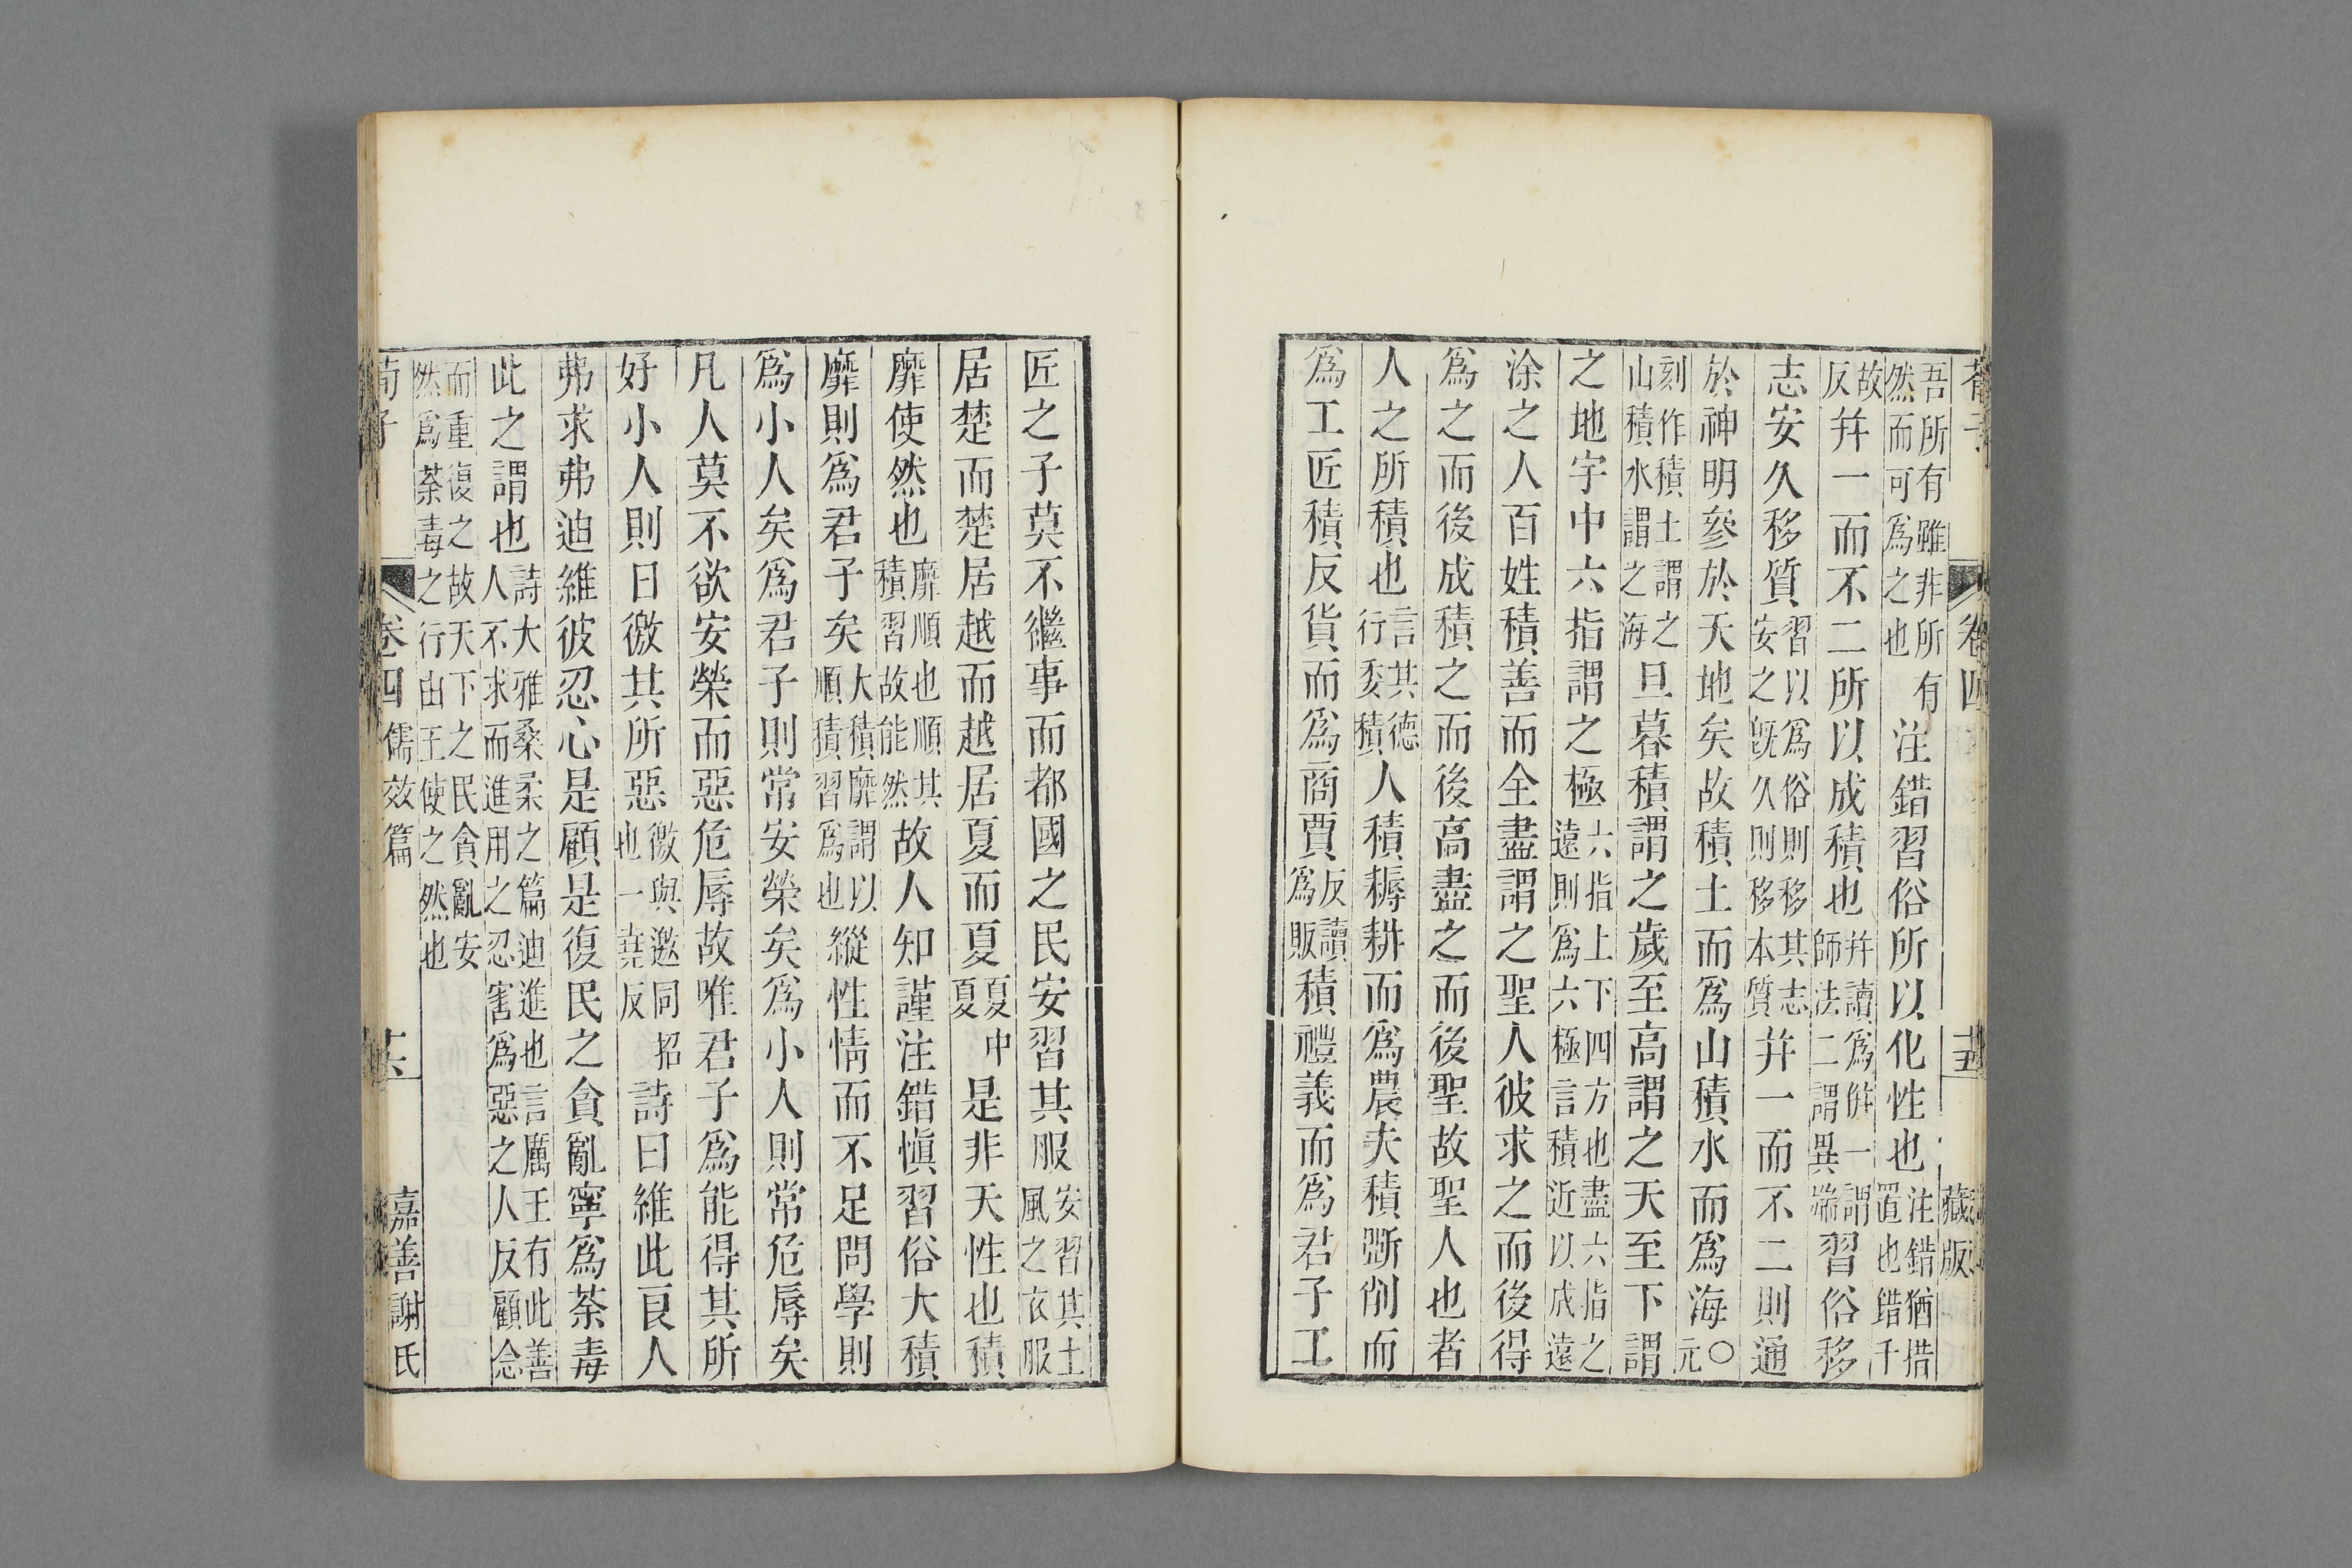 吾所有雖非所有
然而可爲之也
注錯習俗所以化性也
注錯猶措
置也錯千
故
反
幷一而不二所以成積也
幷讀爲倂一謂
師法二謂異端
習俗移
志安久移質
習以爲俗則移其志
安之旣久則移本質
幷一而不二則通
於神明參於天地矣故積土而爲山積水而爲海
〇
元
刻作積土謂之
山積水謂之海
旦暮積謂之歲至高謂之天至下謂
之地宇中六指謂之極
六指上下四方也盡六指之
遠則爲六極言積近以成遠
涂之人百姓積善而全盡謂之聖人彼求之而後得
爲之而後成積之而後高盡之而後聖故聖人也者
人之所積也
言其德
行委積
人積耨耕而爲農夫積斲削而
爲工匠積反貨而爲商賈
反讀
爲販
積禮義而爲君子工
卷四
藏版
匠之子莫不繼事而都國之民安習其服
安習其土
風之衣服
居楚而楚居越而越居夏而夏
夏中
夏
是非天性也積
靡使然也
靡順也順其
積習故能然
故人知謹注錯愼習俗大積
靡則爲君子矣
大積靡謂以
順積習爲也
縱性情而不足問學則
爲小人矣爲君子則常安榮矣爲小人則常危辱矣
凡人莫不欲安榮而惡危辱故唯君子爲能得其所
好小人則日徼其所惡
徼與邀同招
也一堯反
詩曰維此良人
弗求弗迪維彼忍心是顧是復民之貪亂寧爲荼毒
此之謂也
詩大雅桑柔之篇迪進也言厲王有此善
人不求而進用之忍害爲惡之人反顧念
而重復之故天下之民貪亂安
然爲荼毒之行由王使之然也
荀子
卷四儒效篇
嘉善謝氏